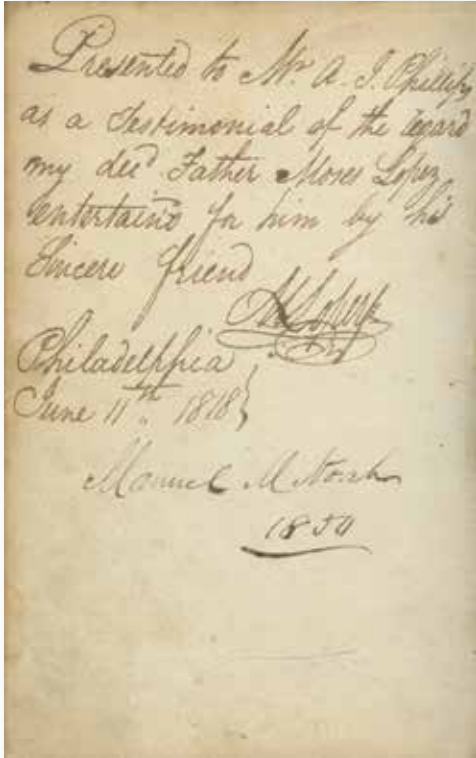 Presented to Mr. A. I. Phillips
as a Testimonial of the regard
my decd Father Moses Lopez
entertaind for him by his
Sincere friend
Lopez
Philadelphia
June 11th. 1818
Manuel M Noah
1854